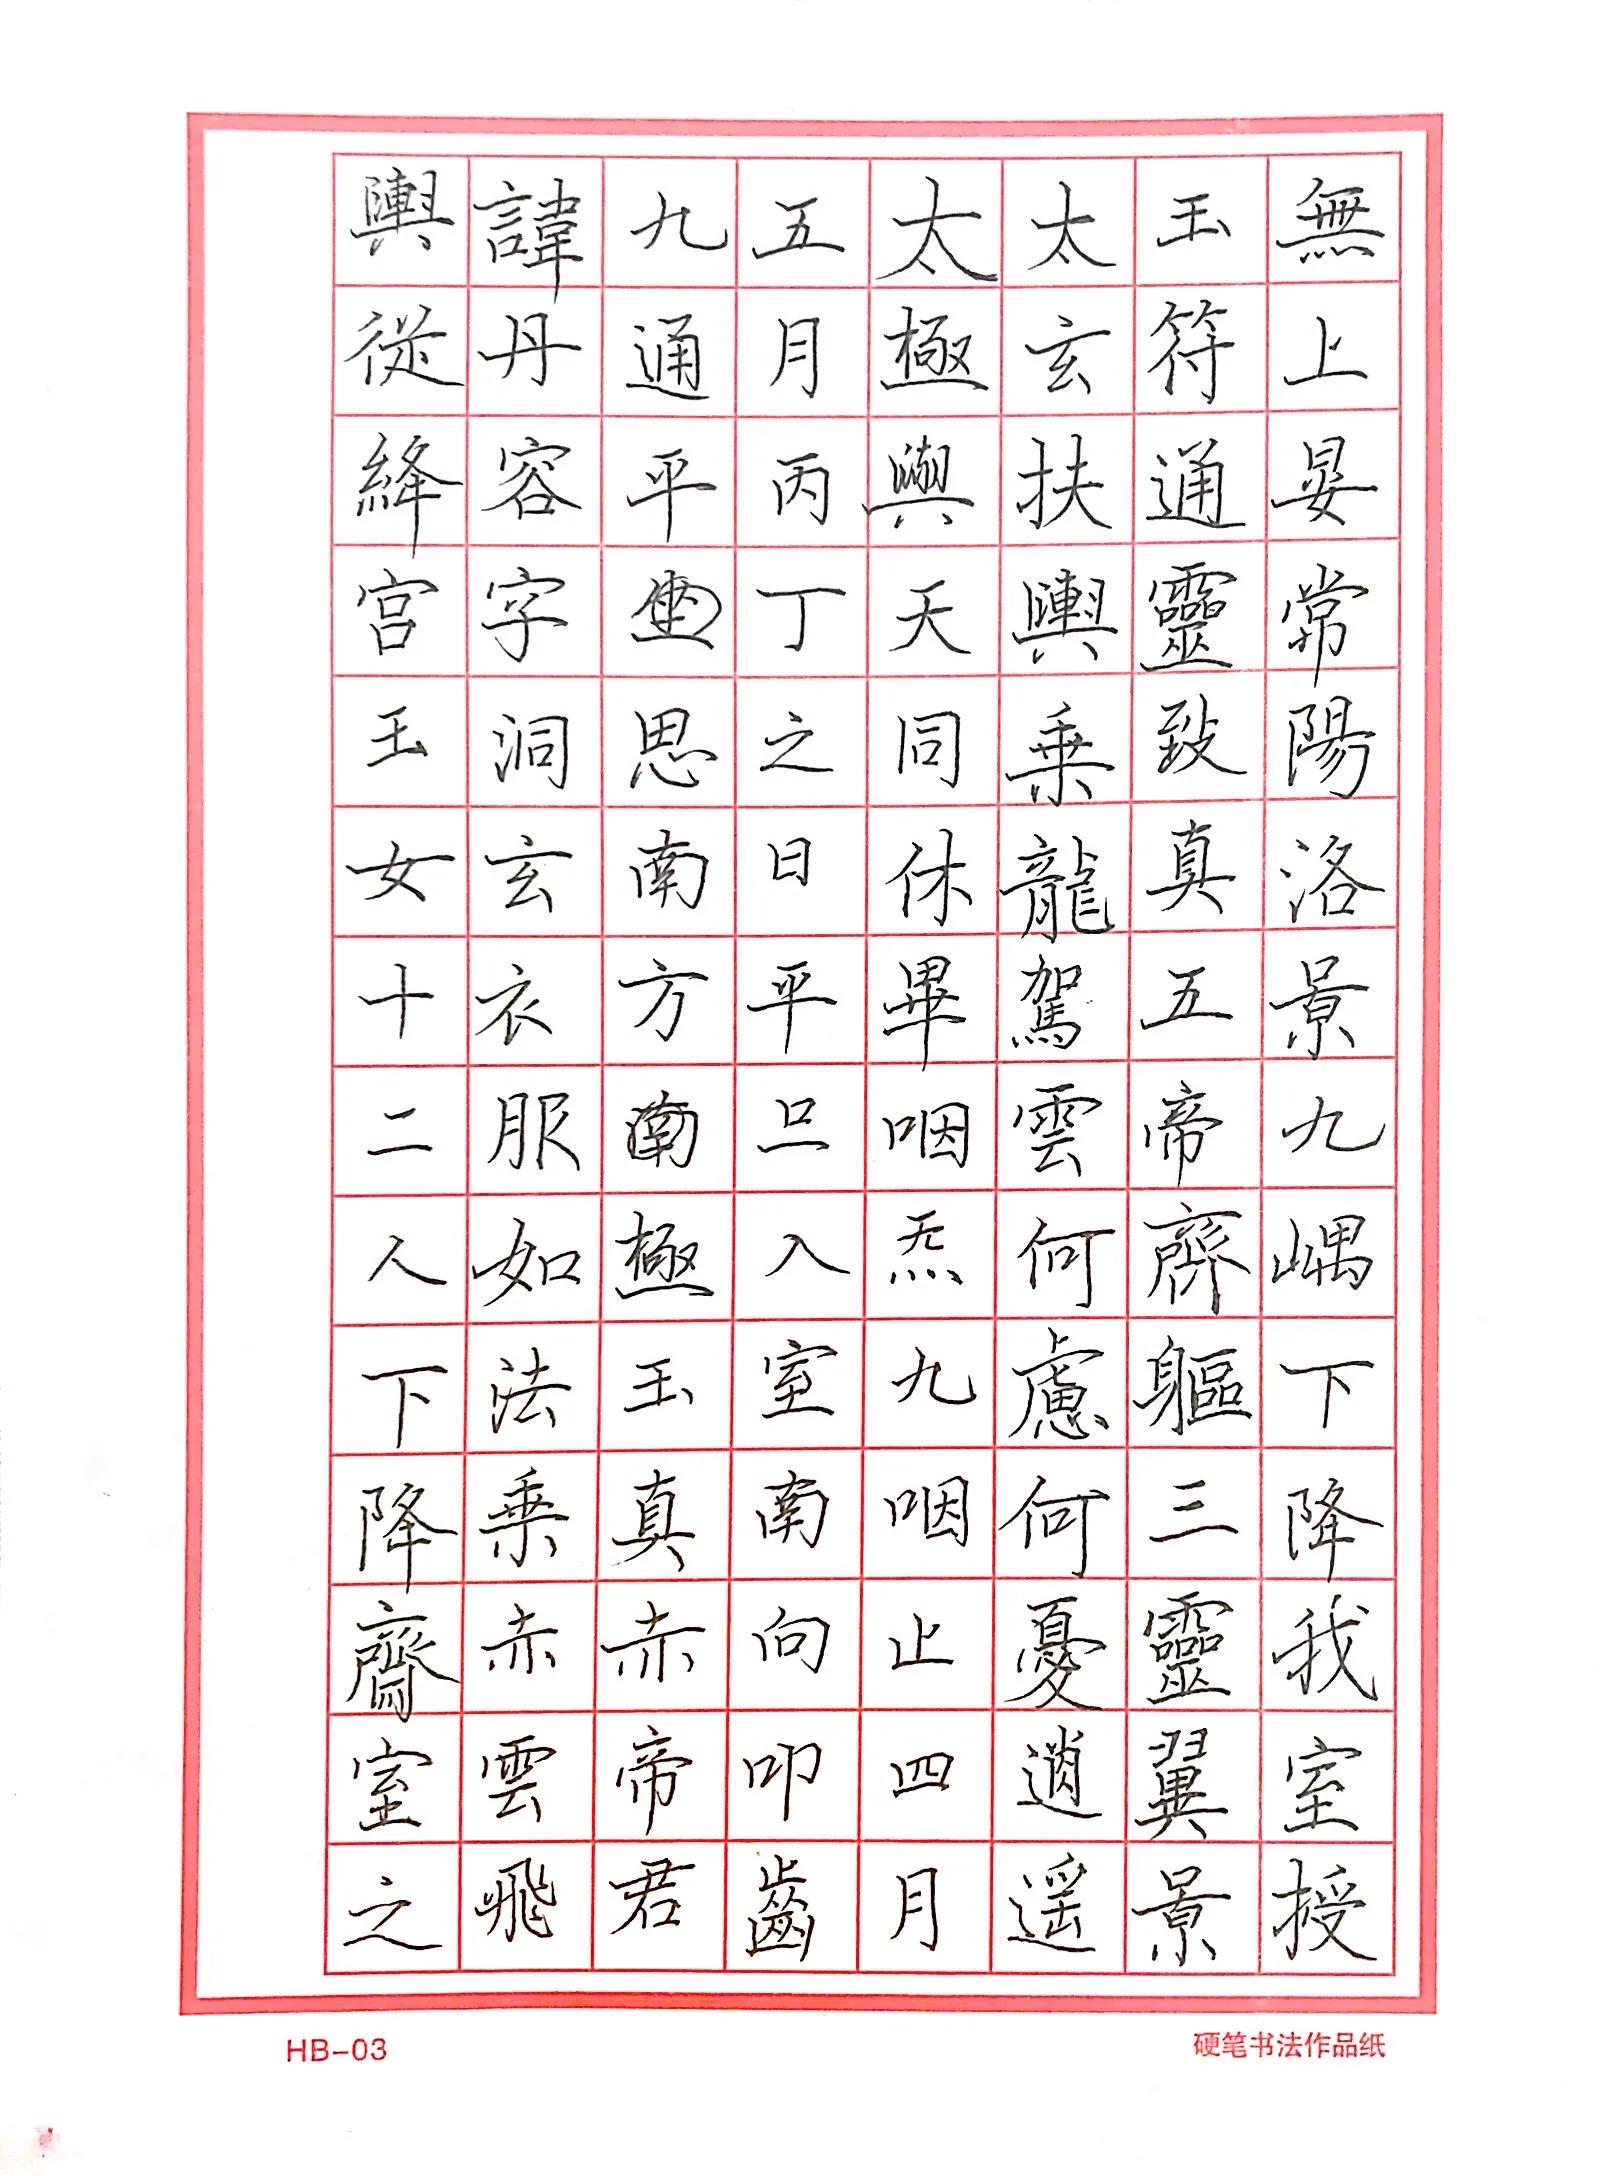 無上晏常陽洛景九嵎下降我室授
玉符通靈致真五帝齊軀三靈翼景
太玄扶輿乗龍駕雲何慮何憂逍遥
太極輿天同休畢咽炁九咽止四月
五月丙丁之日平旦入室南向叩齒
九通平坐思南方南極玉真赤帝君
諱丹容字洞玄衣服如法乗赤雲飛
輿從絳宫玉女十二人下降齋室之
HB-03
硬笔书法作品纸